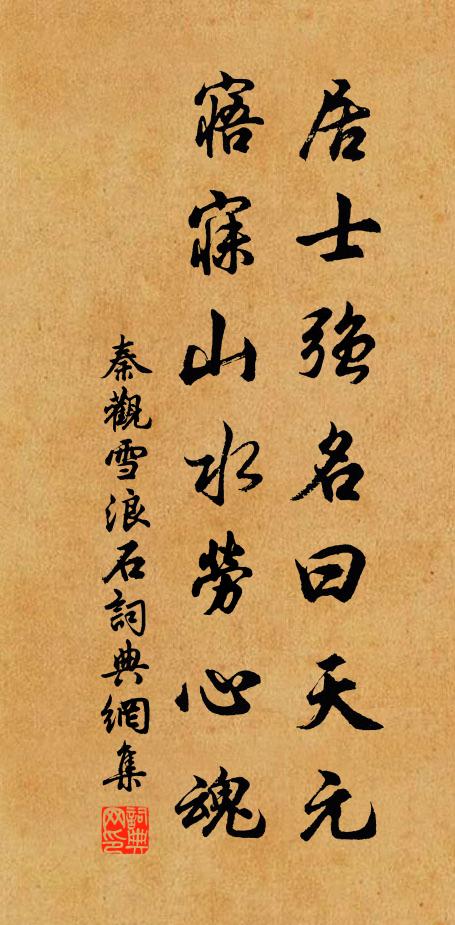 居士強名曰天元
寤寐山水勞心魂
秦觀雪浪石詞典網集
詞典網印